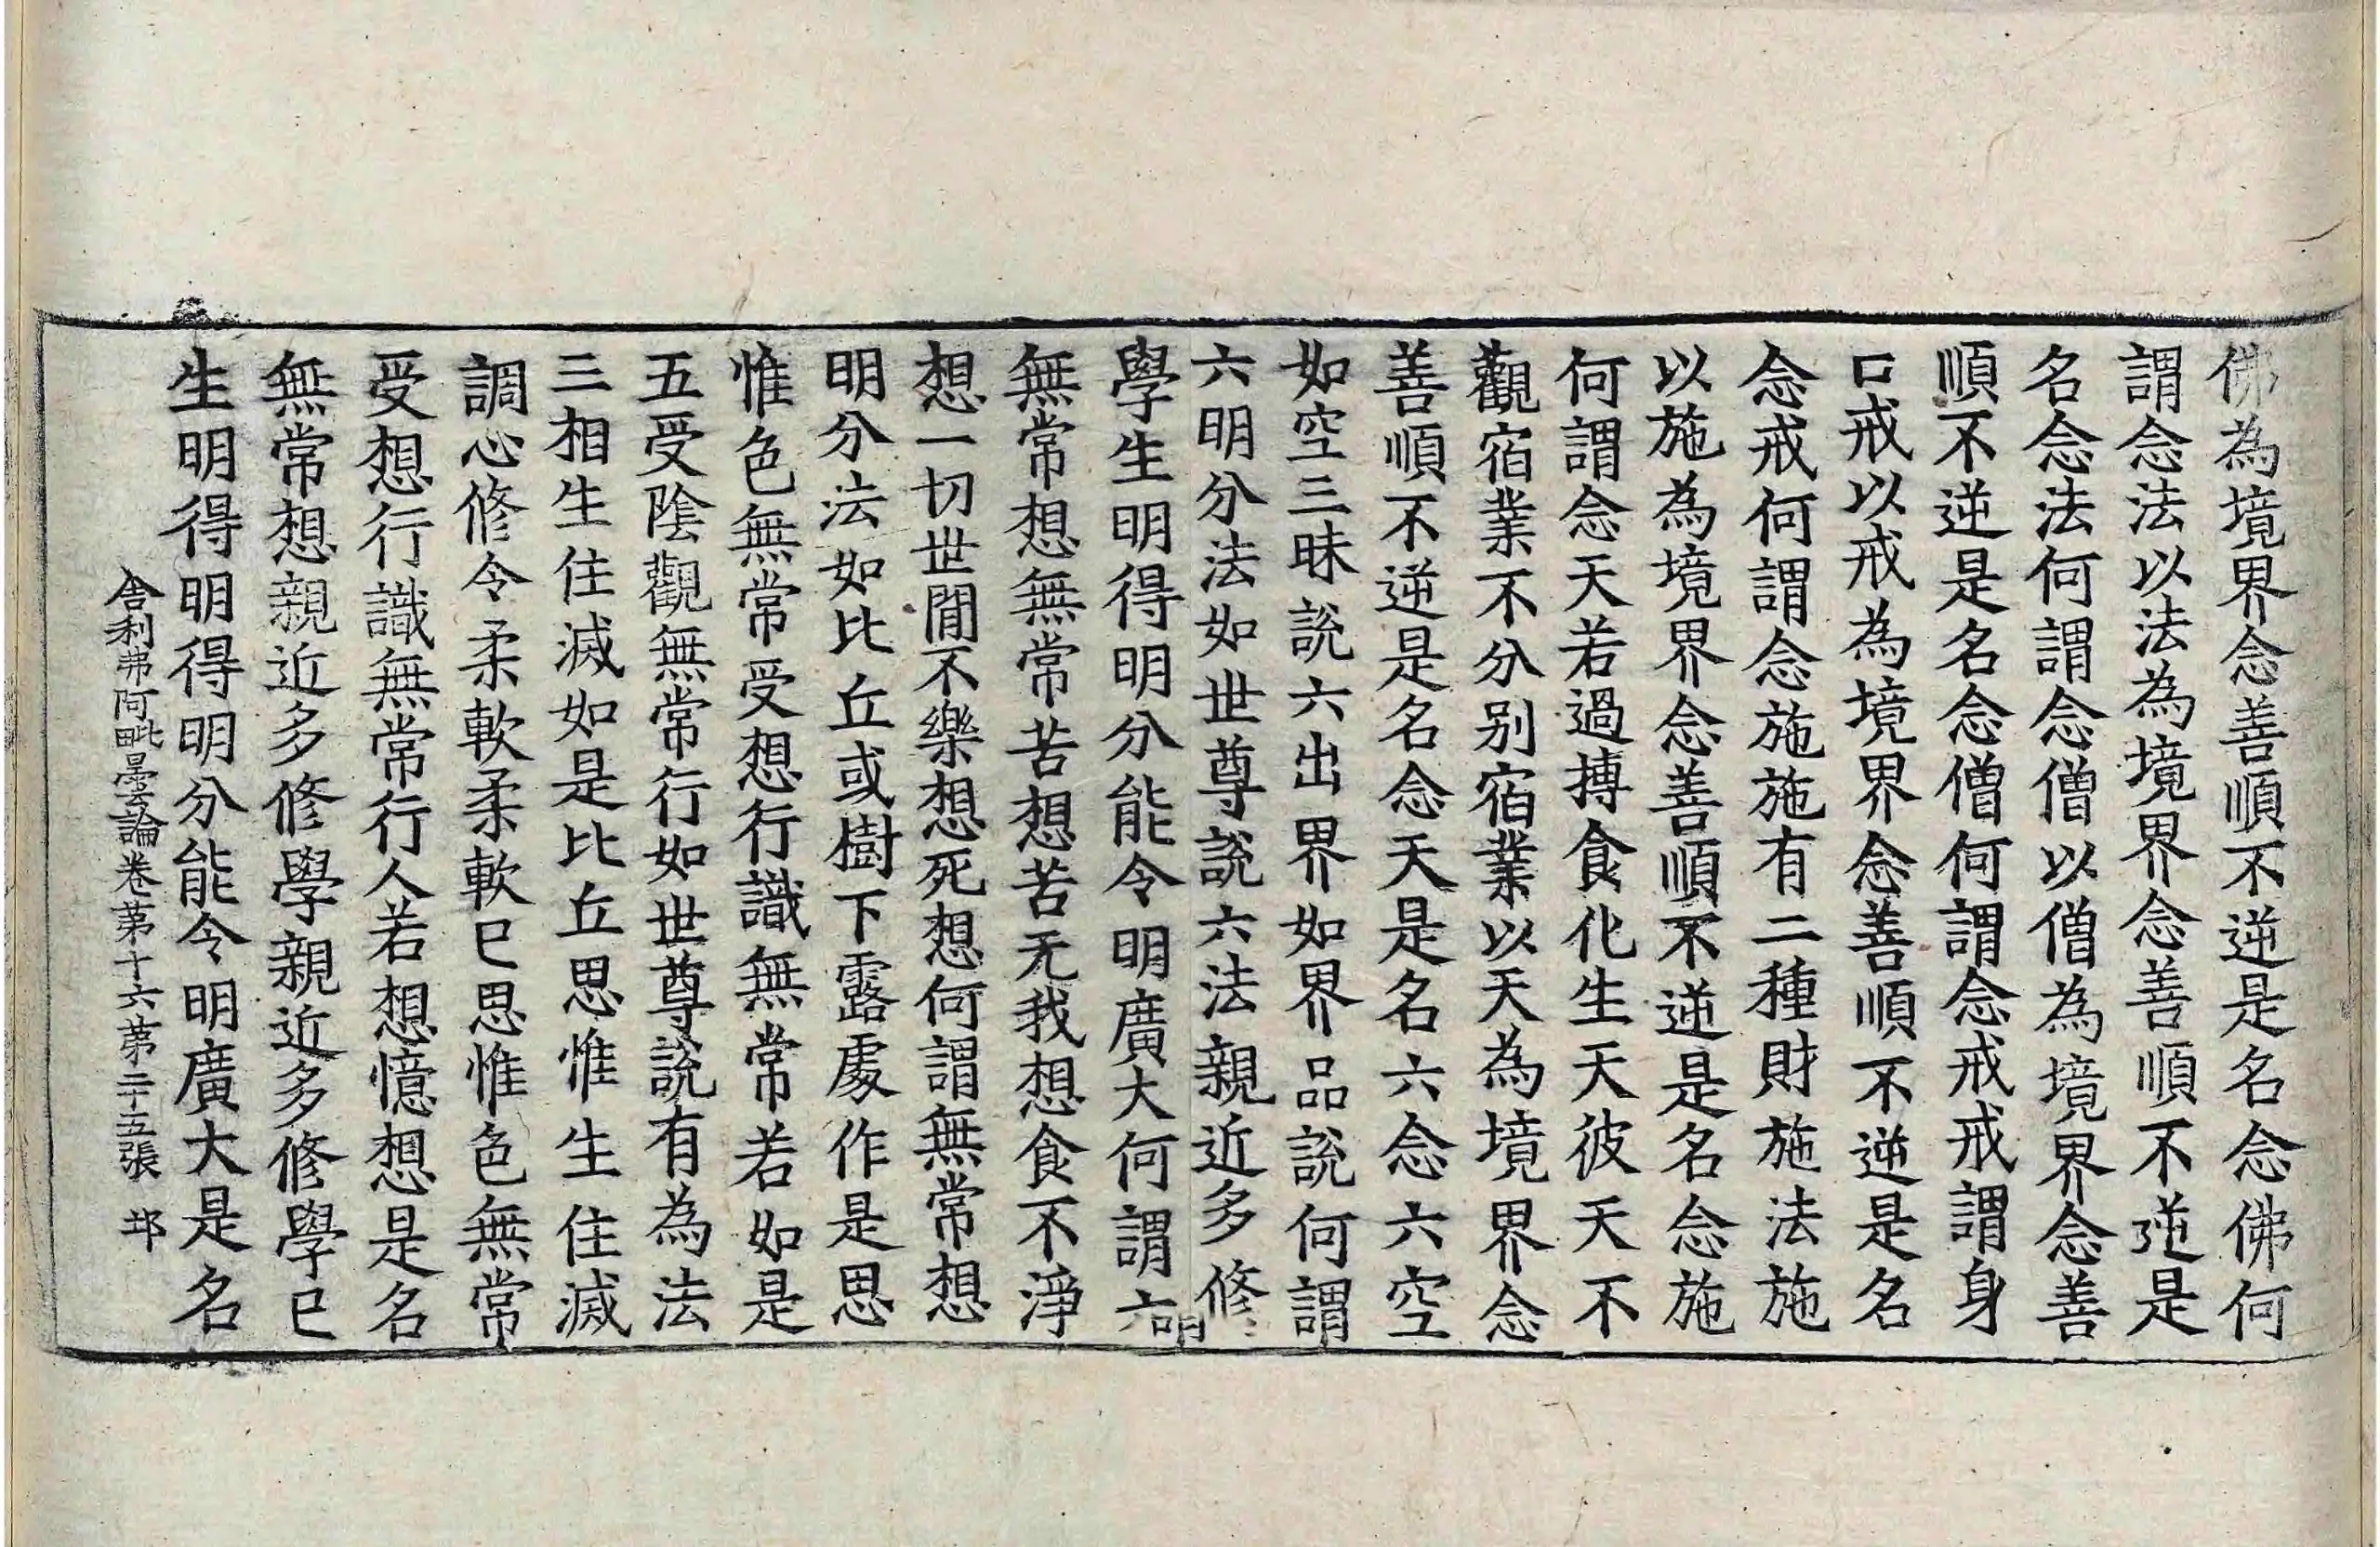 佛為境界念善順不逆是名念佛何
謂念法以法為境界念善順不逆是
名念法何謂念僧以僧為境界念善
順不逆是名念僧何謂念戒戒謂身
口戒以戒為境界念善順不逆是名
念戒何謂念施施有二種財施法施
以施為境界念善順不逆是名念施
何謂念天若過摶食化生天彼天不
觀宿業不分别宿業以天為境界念
善順不逆是名念天是名六念六空
如空三昧說六出界如界品說何謂
六明分法如世尊說六法親近多修
學生明得明分能令明廣大何謂六明
無常想無常苦想苦无我想食不淨
想一切世間不樂想死想何謂無常想
明分法如比丘或樹下露處作是思
惟色無常受想行識無常若如是
五受陰觀無常行如世尊說有為法
三相生住滅如是比丘思惟生住滅
調心修令柔軟柔軟已思惟色無常
受想行識無常行人若想憶想是名
無常想親近多修學親近多修學已
生明得明得明分能令明廣大是名
舍利弗阿毗曇論卷第十六第二十五張